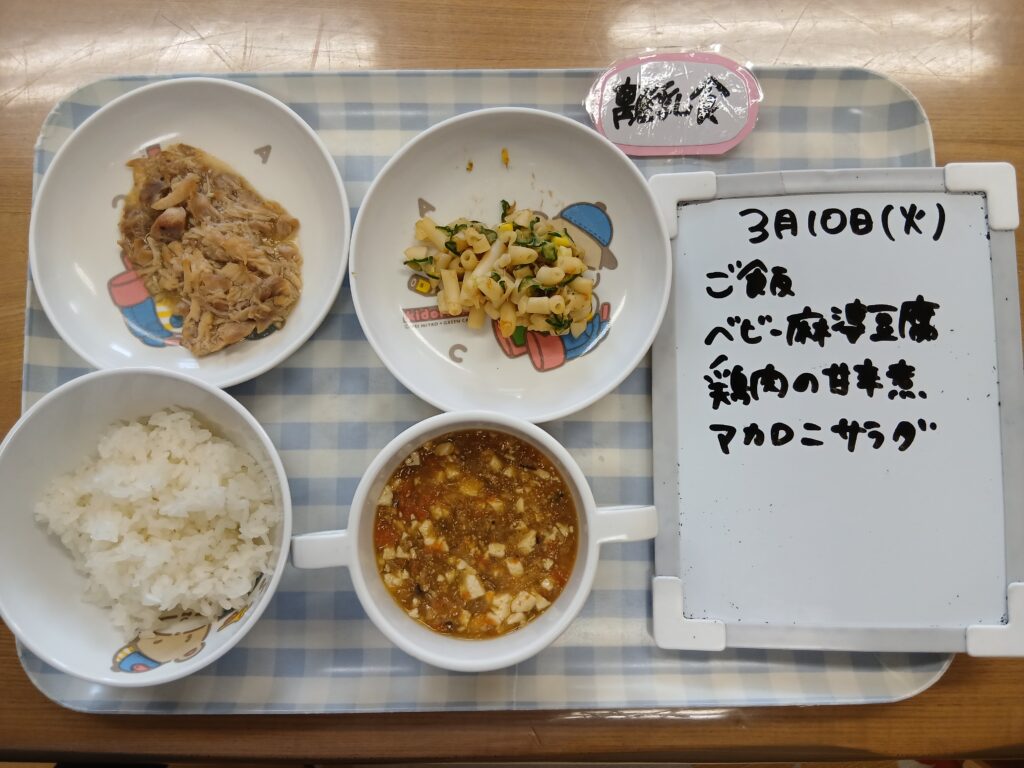 離乳食
3月10日(火)
ご飯
ベビー麻婆豆腐
鶏肉の甘辛煮
マカロニサラダ
A
A
C